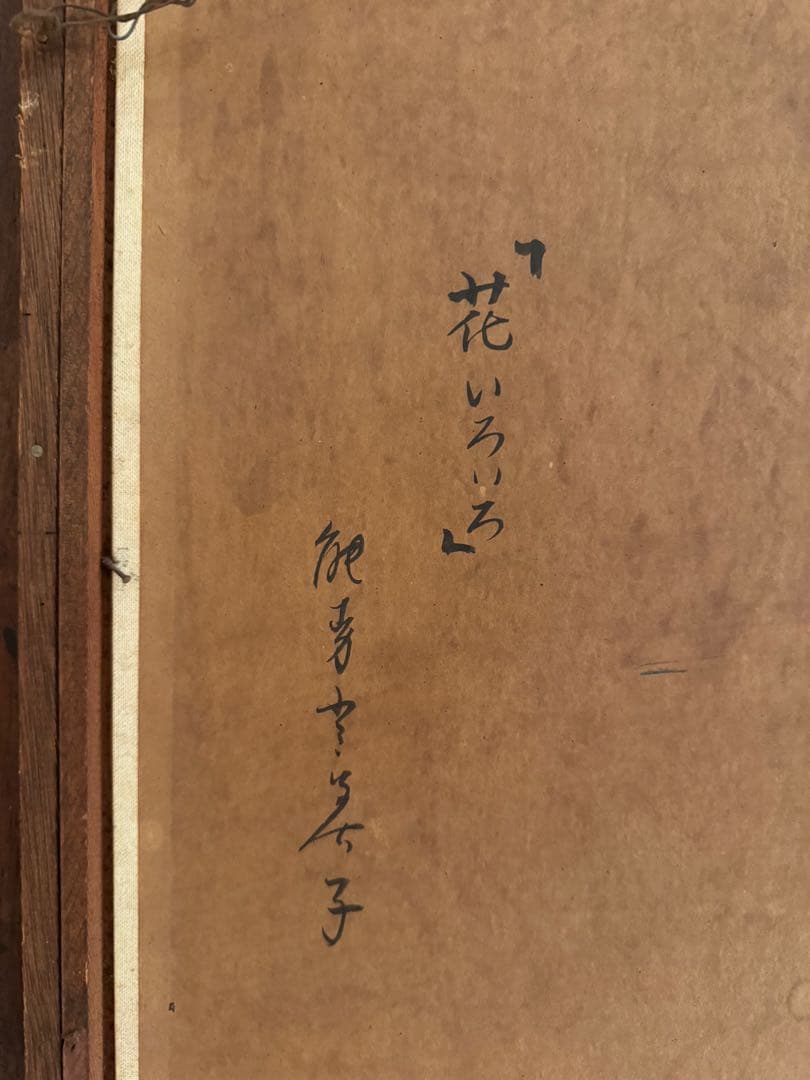 「花いろいろ」
能勢 美子